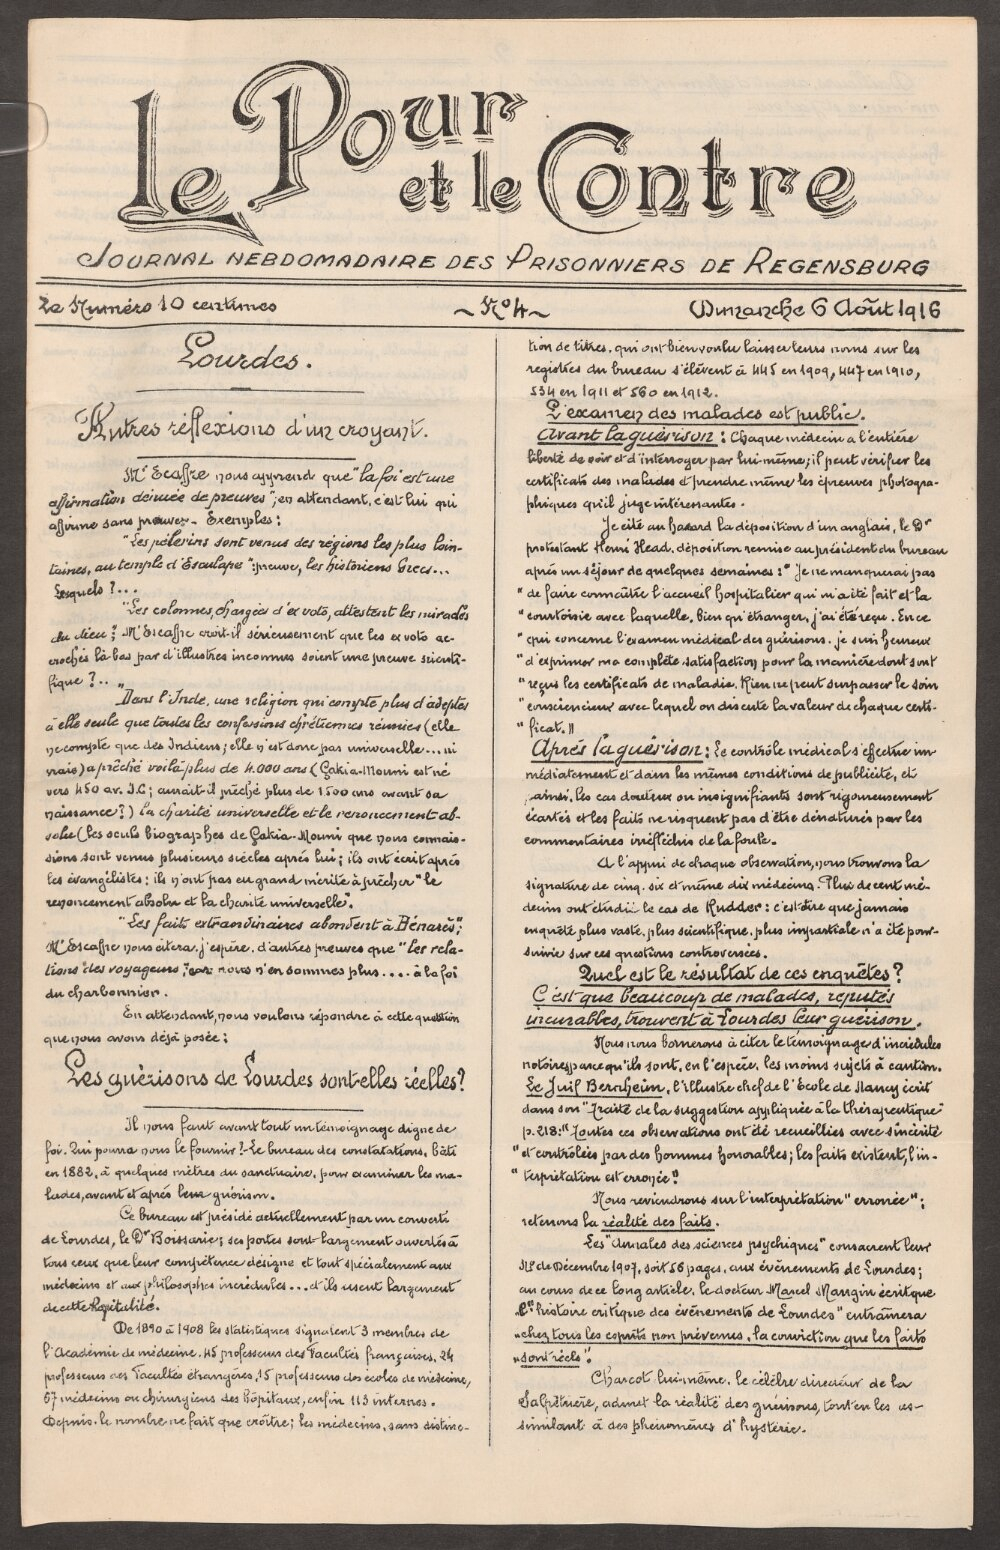 Le Pour
et le Contre
Journal hebdomadaire des Prisonniers de Regensburg
Le Numéro 10 centimes
~ No 4 ~
Dimanche 6 Août 1916
Lourdes.
Autres réflexions d'un croyant.
Mr Escaffre nous apprend que "la foi est une
affirmation dénuée de preuves"; en attendant, c'est lui qui
affirme sans prouver. Exemples:
"Les pèlerins sont venus des régions les plus loin-
taines, au temple d'Esculape": preuve, les historiens Grecs...
Lesquels?...
"Les colonnes, chargées d'ex voto, attestent les miracles
du dieu? Mr Escaffre croit-il sérieusement que les ex voto ac-
crochés là-bas par d'illustres inconnus soient une preuve scienti-
fique?..
"Dans l'Inde, une religion qui compte plus d'adeptes
à elle seule que toutes les confessions chrétiennes réunies (elle
ne compte que des Indiens; elle n'est donc pas universelle.... ni
vraie) a prêché voilà plus de 4.000 ans (Çakia-Mouni est né
vers 450 av. J.C; aurait-il prêché plus de 1500 ans avant sa
naissance?) la charité universelle et le renoncement ab-
solu (les seuls biographes de Çakia-Mouni que nous connais-
sions sont venus plusieurs siècles après lui; ils ont écrit après
les évangélistes: ils n'ont pas eu grand mérite à prêcher "le
renoncement absolu et la charité universelle".
"Les faits extraordinaires abondent à Bénarès";
Mr Escaffre nous citera, j'espère, d'autres preuves que "les rela-
tions des voyageurs", car nous n'en sommes plus.... à la foi
du charbonnier.
En attendant, nous voulons répondre à cette question
que nous avons déjà posée:
Les guérisons de Lourdes sont-elles réelles?
Il nous faut avant tout un témoignage digne de
foi. Qui pourra nous le fournir? Le bureau des constatations, bâti
en 1882, à quelques mètres du sanctuaire, pour examiner les ma-
lades, avant et après leur guérison.
Ce bureau est présidé actuellement par un converti
de Lourdes, le Dr Boissarie; ses portes sont largement ouvertes à
tous ceux que leur compétence désigne et tout spécialement aux
médecins et aux philosophes incrédules... et ils usent largement
de cette hospitalité.
De 1890 à 1908 les statistiques signalent 3 membres de
l'Académie de médecine, 45 professeurs des Facultés françaises, 24
professeurs des Facultés étrangères, 15 professeurs des écoles de médecine,
67 médecins ou chirurgiens des hôpitaux, enfin 113 internes.
Depuis, le nombre ne fait que croître; les médecins, sans distinc-
tion de titres, qui ont bien voulu laisser leurs noms sur les
registres du bureau s'élèvent à 445 en 1909, 447 en 1910,
534 en 1911 et 560 en 1912.
L'examen des malades est public.
Avant la guérison: Chaque médecin a l'entière
liberté de voir et d'interroger par lui-même; il peut vérifier les
certificats des malades et prendre même les épreuves photogra-
phiques qu'il juge intéressantes.
Je cite au hasard la déposition d'un anglais, le Dr
protestant Henri Head, déposition remise au président du bureau
après un séjour de quelques semaines: "Je ne manquerai pas
"de faire connaître l'accueil hospitalier qui m'a été fait et la
"courtoisie avec laquelle, bien qu'étranger, j'ai été reçu. En ce
"qui concerne l'examen médical des guérisons, je suis heureux
"d'exprimer ma complète satisfaction pour la manière dont sont
"reçus les certificats de maladie. Rien ne peut surpasser le soin
"consciencieux avec lequel on discute la valeur de chaque certi-
"ficat."
Après la guérison: Le contrôle médical s'effectue im-
médiatement et dans les mêmes conditions de publicité, et
ainsi, les cas douteux ou insignifiants sont rigoureusement
écartés et les faits ne risquent pas d'être dénaturés par les
commentaires irréfléchis de la foule.
A l'appui de chaque observation, nous trouvons la
signature de cinq, six et même dix médecins. Plus de cent mé-
decins ont étudié le cas de Rudder: c'est dire que jamais
enquête plus vaste, plus scientifique, plus impartiale n'a été pour-
suivie sur ces questions controversées.
Quel est le résultat de ces enquêtes?
C'est que beaucoup de malades, réputés
incurables, trouvent à Lourdes leur guérison.
Nous nous bornerons à citer le témoignage d'incrédules
notoires, parce qu'ils sont, en l'espèce, les moins sujets à caution.
Le Juif Bernheim, l'illustre chef de l'École de Nancy écrit
dans son "Traité de la suggestion appliquée à la thérapeutique"
p. 218: "Toutes ces observations ont été recueillies avec sincérité
"et contrôlées par des hommes honorables; les faits existent, l'in-
"terprétation est erronée."
Nous reviendrons sur l'interprétation "erronée":
retenons la réalité des faits.
Les "Annales des sciences psychiques" consacrent leur
No de Décembre 1907, soit 56 pages, aux événements de Lourdes;
au cours de ce long article, le docteur Marcel Mangin écrit que
"l'histoire critique des événements de Lourdes" entraînera
"chez tous les esprits non prévenus, la conviction que les faits
"sont réels".
Charcot lui-même, le célèbre directeur de la
Salpêtrière, admet la réalité des guérisons, tout en les as-
similant à des phénomènes d'hystérie.